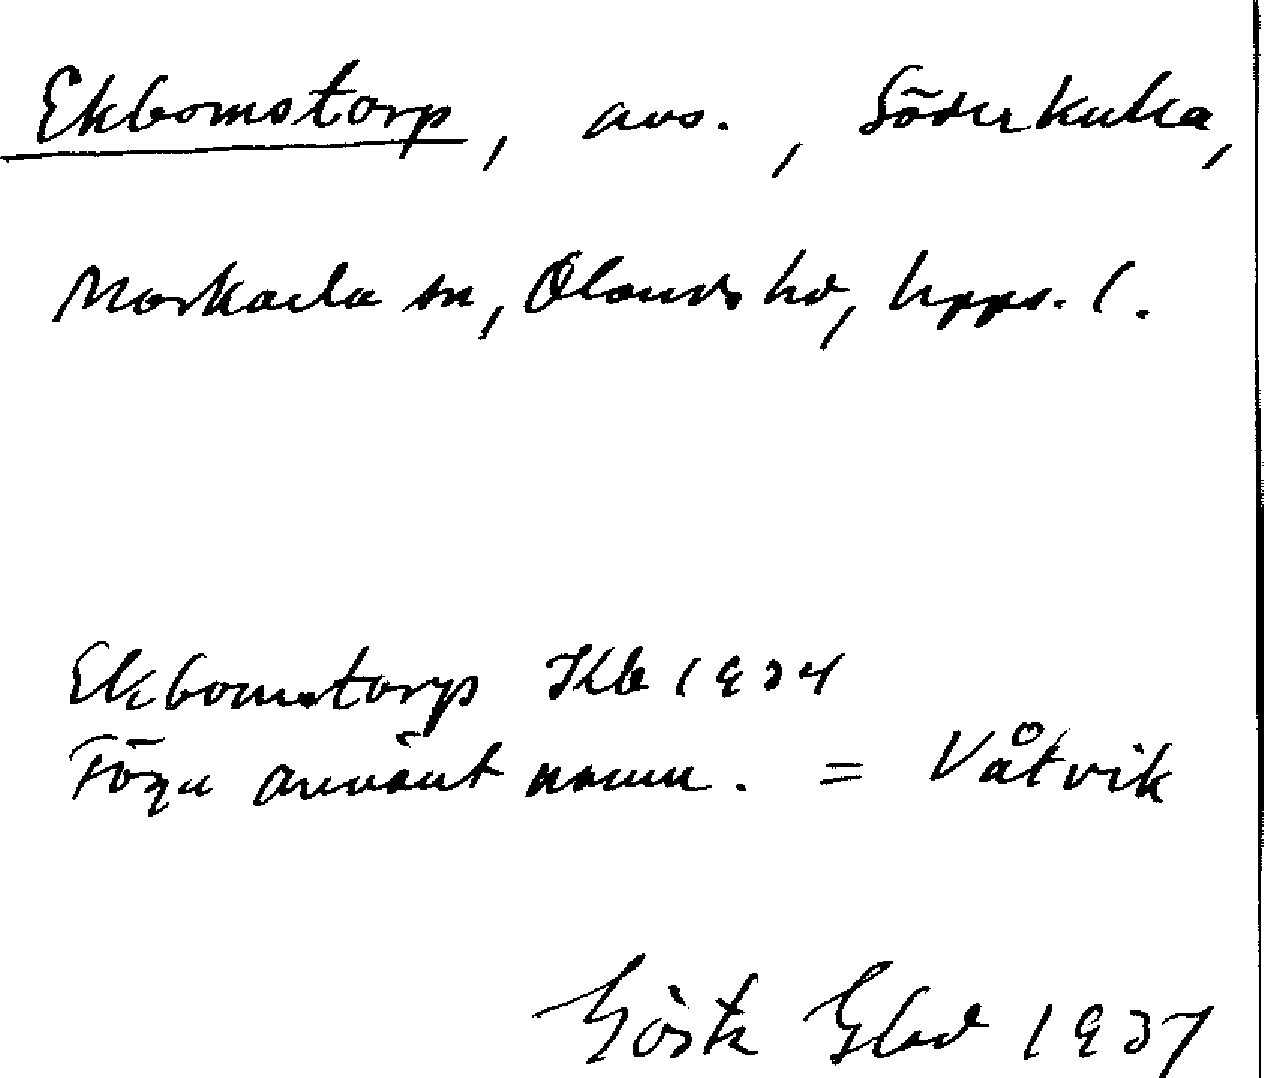 Ekbomstorp, avs., Söderkulla,
Morkarla sn, Olands hd, Upps. l.
Ekbomstorp Kb 1934
Föga använt namn. = Våtvik
Gösta Glad 1937